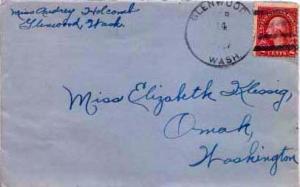 Miss Audrey Holcomb
Glenwood, Wash.
GLENWOOD
14
WASH.
Miss Elizabeth Klessig,
Omak,
Washington